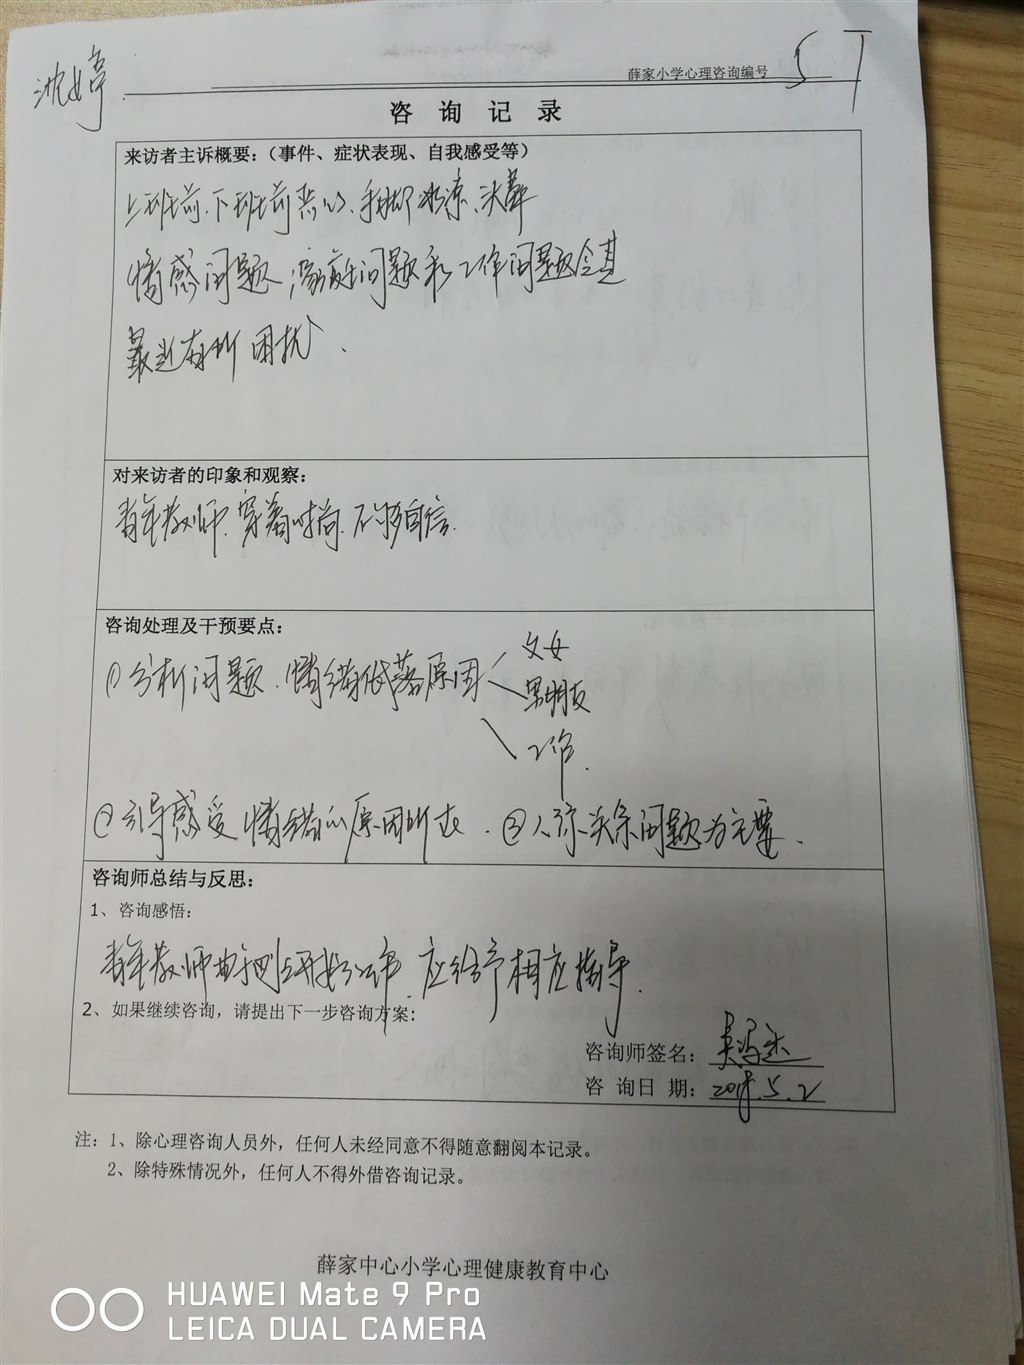 沈婷
薛家小学心理咨询编号 ST
咨 询 记 录
来访者主诉概要：（事件、症状表现、自我感受等）
上班前、下班前恶心、手脚冰凉、头晕
情感问题、家庭问题和工作问题令其
最近有所困扰、
对来访者的印象和观察：
青年教师、穿着时尚、不够自信.
咨询处理及干预要点：
①分析问题、情绪低落原因
父女
男朋友
工作.
②引导感受情绪的原因所在. ③人际关系问题为主要.
咨询师总结与反思：
1、咨询感悟：
青年教师 应给予相应指导.
2、如果继续咨询，请提出下一步咨询方案：
咨询师签名：
咨 询 日 期：2018.5.2
注：1、除心理咨询人员外，任何人未经同意不得随意翻阅本记录。
2、除特殊情况外，任何人不得外借咨询记录。
薛家中心小学心理健康教育中心
HUAWEI Mate 9 Pro
LEICA DUAL CAMERA